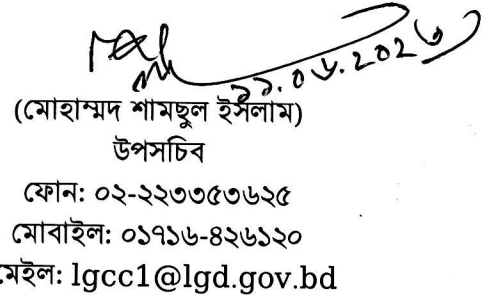 ১১.০৬.২০২৬
(মোহাম্মদ শামছুল ইসলাম)
উপসচিব
ফোন: ০২-২২৩৩৫৩৬২৫
মোবাইল: ০১৭১৬-৪২৬১২০
মেইল: lgcc1@lgd.gov.bd